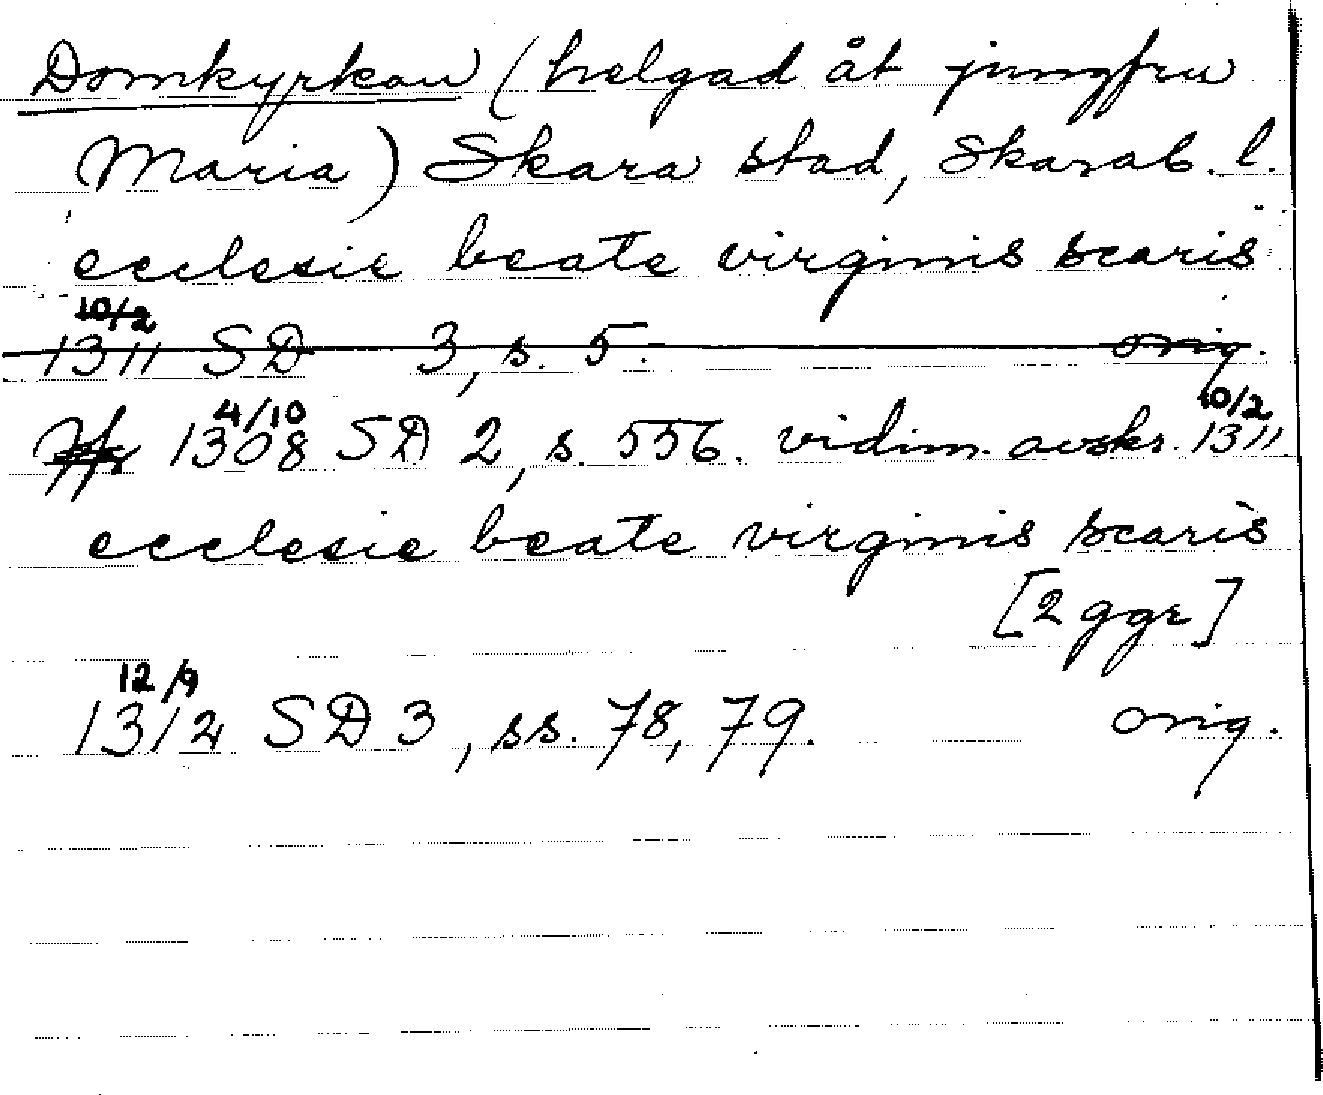 Domkyrkan (helgad åt jungfru
Maria) Skara stad, Skarab. l.
ecclesie beate virginis scaris
10/2
1311 SD 3, s. 5. orig.
4/10 10/2
1308 SD 2, s. 556. vidim. avskr. 1311.
ecclesie beate virginis scaris
[2 ggr]
12/9
1312 SD 3, ss. 78, 79. orig.